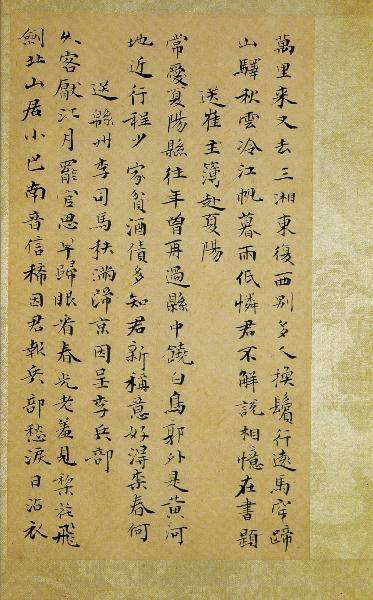 萬里来又去三湘東復西別多人換鬢行遠馬穿蹄
山驛秋雲冷江帆暮雨低憐君不解說相憶在書題
送崔主簿赴夏陽
常愛夏陽縣往年曾再過縣中饒白鳥郭外是黃河
地近行程少家貧酒債多知君新稱意好得柰春何
送緜州李司馬秩滿歸京因呈李兵部
久客厭江月罷官思早歸眼看春光老羞見梨花飛
劒北山居小巴南音信稀因君報兵部愁淚日沾衣